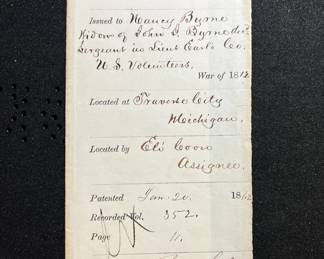 Issued to Nancy Byrne
Widow of John J. Byrne
Sergeant in Lieut Earl's Co.
U.S. Volunteers.
War of 1812
Located at Traverse City
Michigan.
Located by Eli Coon
Assignee.
Patented Jan. 20. 18
Recorded Vol. 352.
Page 11.